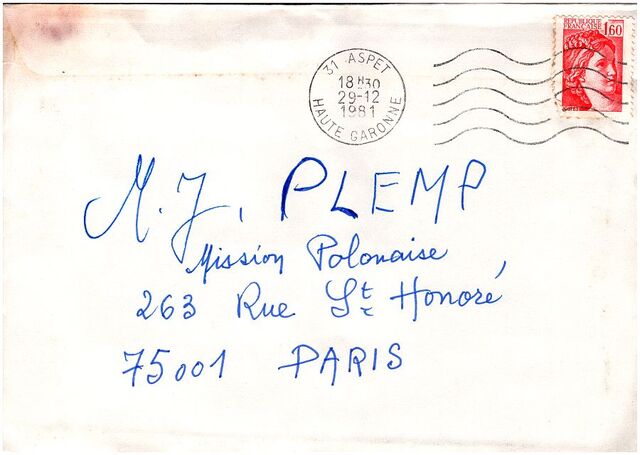 RÉPUBLIQUE
FRANÇAISE
1,60
31 ASPET
18 H30
29-12
1981
HAUTE GARONNE
M. J. PLEMP
Mission Polonaise
263 Rue St Honoré
75001 PARIS